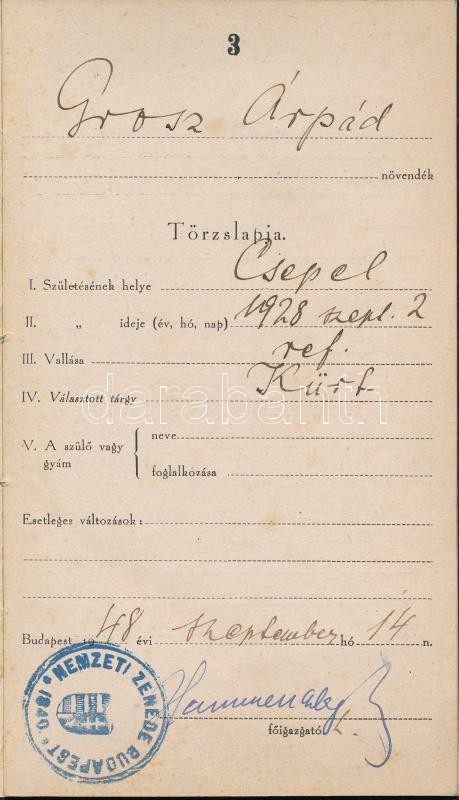 3
Grosz Árpád
növendék
Törzslapja.
I. Születésének helye Csepel
II. „ ideje (év, hó, nap) 1928 szept. 2
III. Vallása ref.
IV. Választott tárgy Kürt
V. A szülő vagy gyám { neve
foglalkozása
Esetleges változások:
Budapest 1948 évi szeptember hó 14 n.
főigazgató
NEMZETI ZENEDE BUDAPEST * 1840. *
darabanth